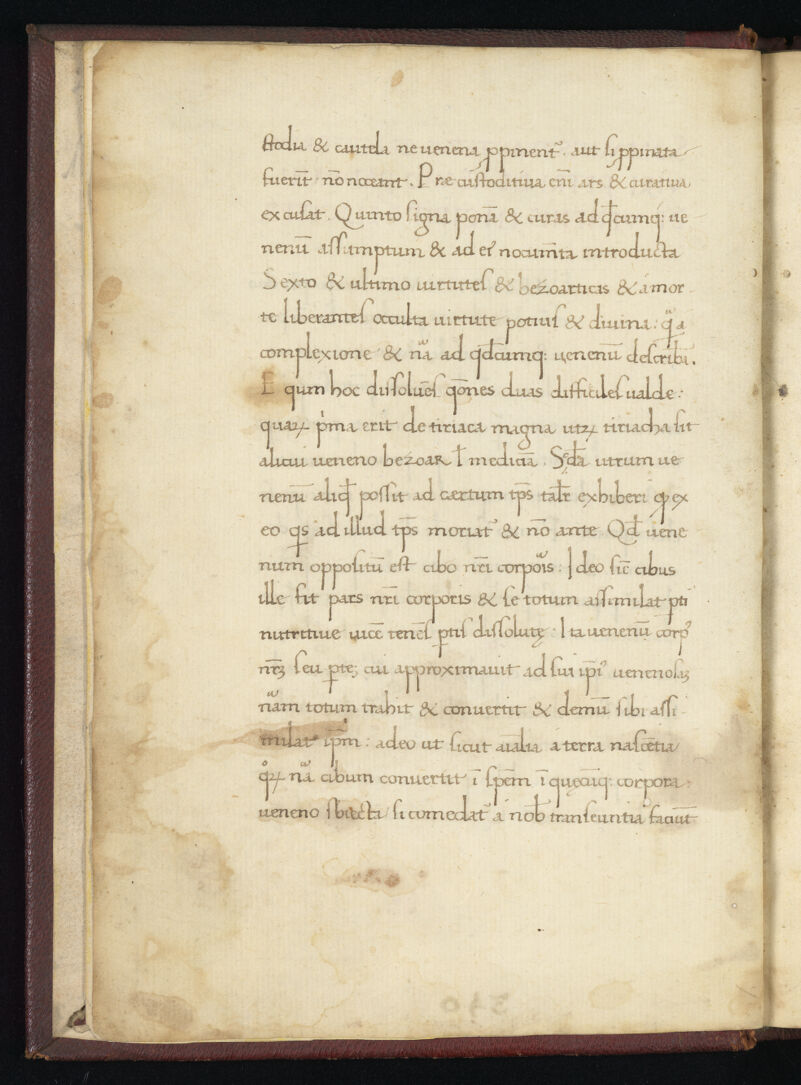 ſtodia & cautela ne uenena ꝓpinent᷒. aut ſi ꝓpinata
fuerīt nō noceant. Prę cuſtoditiua em̄ ars & curatiua
excuſat. Quinto ſigna ponā & curas ad qđcumq: ue
nenū aſſumptum & ad ei᷒ nocum̄ta introducta
Sexto & ultimo uirtuteſ & bezoarticas & a mor
te liberanteſ occulta uirtute potiuſ & diuina: qͣ a
complexione & nͣā ad qđcumq: uenenū deſcribā.
Equm hoc diſſoluēſ qōnes duas difficileſ ualde:
quaꝝ pͥma erit de tiriaca magna utꝝ tiriacha ſit
alicui ueneno bezoar ł mediciā. Sc̄đa utrum ue
nenū aliqđ poſſit ad cærtum tp̄s talr̄ exhiberi ꝙ ex
eo qs ad illud tp̄s moriat᷒ & nō ante Qđ uene
num oppoſitū eſt cibo nr̄i corpoͣis: Ideo ſic̄ cibus
ille fit pars nr̄i corporis & ſe totum aſſimilat pti
nutritiue uicē tenēſ ꝑtiſ diſſolutę: Ita uenenū corp᷒
nr̄ꝫ ſeu ꝑtę; cui approximauit ad ſui ip̄i᷒ uenenoſaꝫ
nͣām totum trahit & conuertit & demū ſibi aſſi
milat ip̄m: adeo ut ſicut aīalia a terra naſcētia
qͦꝝ nͣā cibum conuertit ī ſpēm ī quęcūq: corpora
ueneno ſbiecta ſi comedat᷒ a nob̄ tranſeuntia faciūt